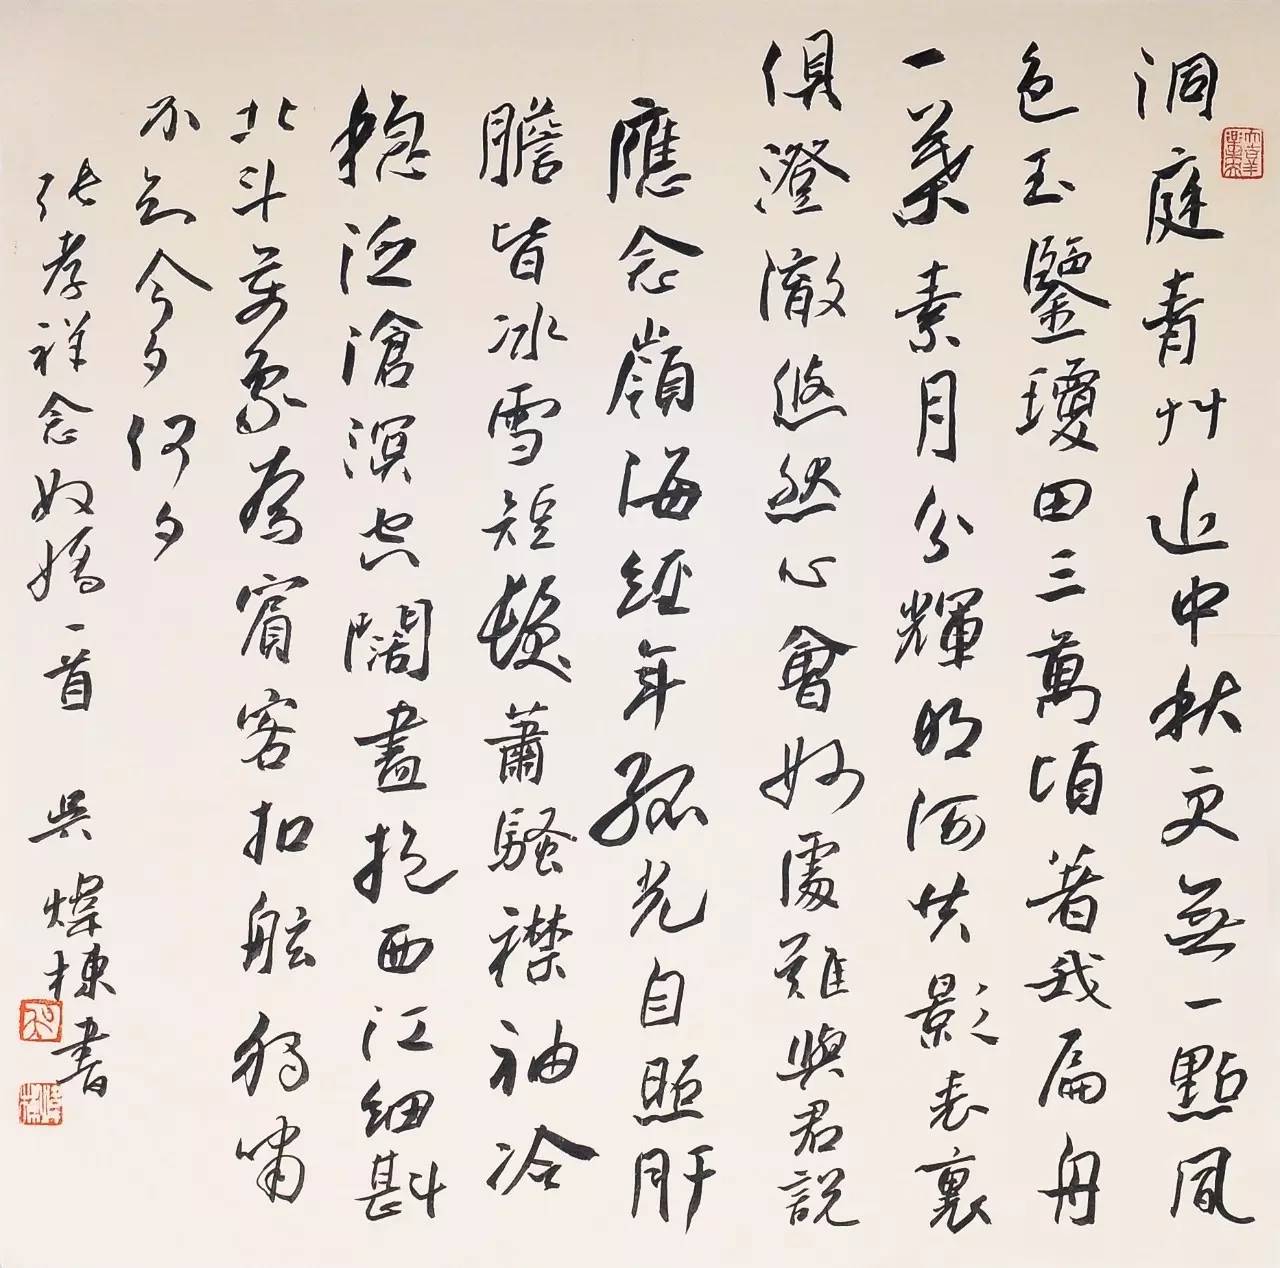 洞庭青艸近中秋更無一點風
色玉鑒瓊田三萬頃著我扁舟
一葉素月分輝明河共影表裏
俱澄澈悠然心會妙處難與君說
應念嶺海經年孤光自照肝
膽皆冰雪短髮蕭騷襟袖冷
穩泛滄溟空闊盡挹西江細斟
北斗萬象為賓客扣舷獨嘯
不知今夕何夕
張孝祥念奴嬌一首 吳燁棟書